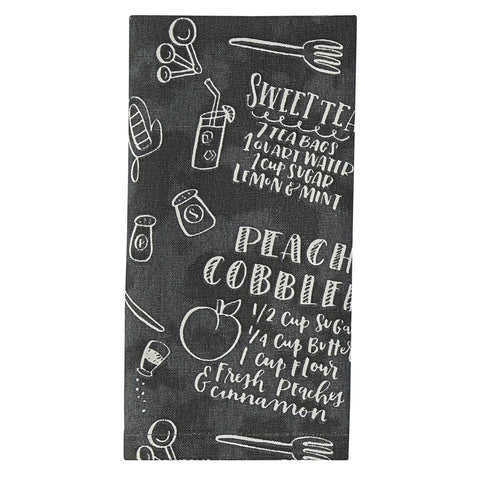 SWEET TEA
7 TEA BAGS
1 QUART WATER
1 CUP SUGAR
LEMON & MINT
P
S
PEACH
COBBLE
1/2 Cup Suga
1/4 Cup Butter
1 Cup Flour
& Fresh Peaches
& Cinnamon